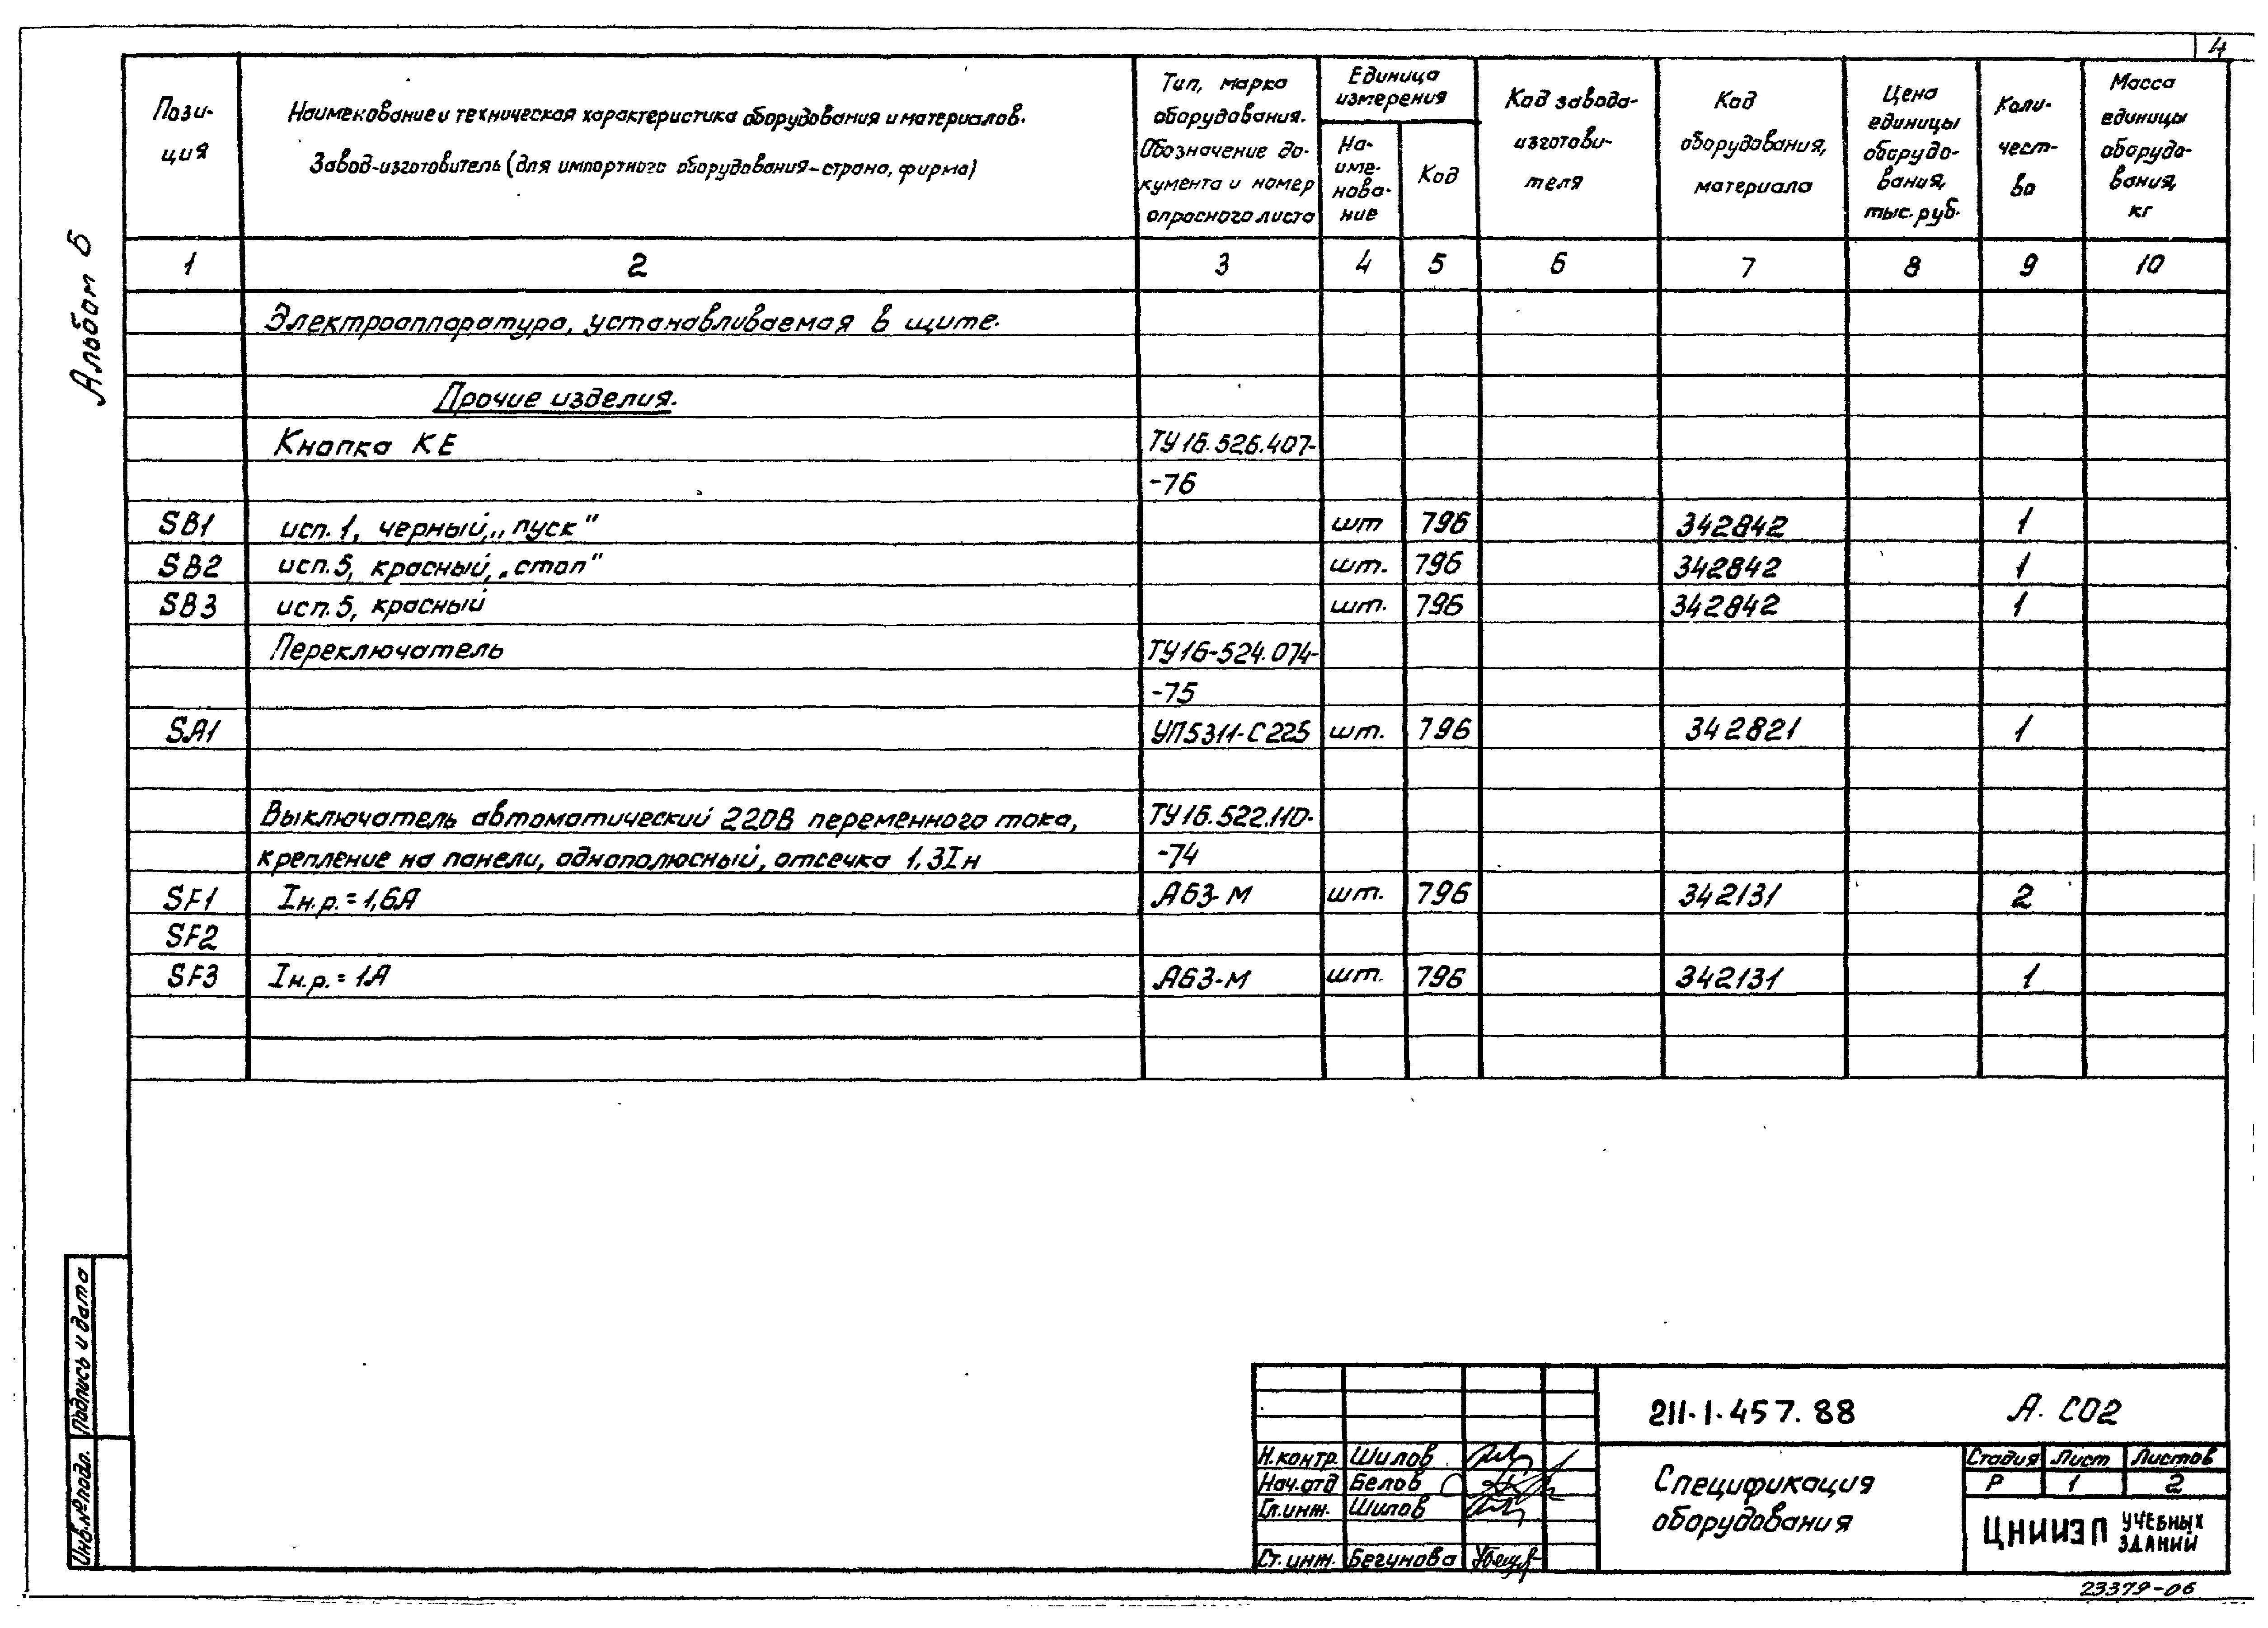 4
Альбом 6
Пози-
ция
Наименование и техническая характеристика оборудования и материалов.
Завод-изготовитель (для импортного оборудования-страна, фирма)
Тип, марка
оборудования.
Обозначение до-
кумента и номер
опросного листа
Единица
измерения
На-
име-
нова-
ние
Код
Код завода-
изготови-
теля
Код
оборудования,
материала
Цена
единицы
оборудо-
вания,
тыс. руб.
Коли-
чест-
во
Масса
единицы
оборудо-
вания,
кг
1 2 3 4 5 6 7 8 9 10
Электроаппаратура, устанавливаемая в щите.
Прочие изделия.
Кнопка КЕ ТУ16.526.407-
-76
SB1 исп. 1, черный, „пуск" шт 796 342842 1
SB2 исп. 5, красный, „стоп" шт. 796 342842 1
SB3 исп. 5, красный шт. 796 342842 1
Переключатель ТУ16-524.074-
-75
SA1 УП5311-С225 шт. 796 342821 1
Выключатель автоматический 220В переменного тока, ТУ16.522.110-
крепление на панели, однополюсный, отсечка 1,3Iн -74
SF1 Iн.р. = 1,6А А63-М шт. 796 342131 2
SF2
SF3 Iн.р. = 1А А63-М шт. 796 342131 1
Подпись и дата
Инв.№ подл.
211-1-457.88 А. СО2
Н.контр. Шилов
Нач.отд Белов
Гл.инж. Шилов
Ст. инж. Бегунова
Спецификация
оборудования
Стадия Лист Листов
Р 1 2
ЦНИИЭП УЧЕБНЫХ
ЗДАНИЙ
23379-06